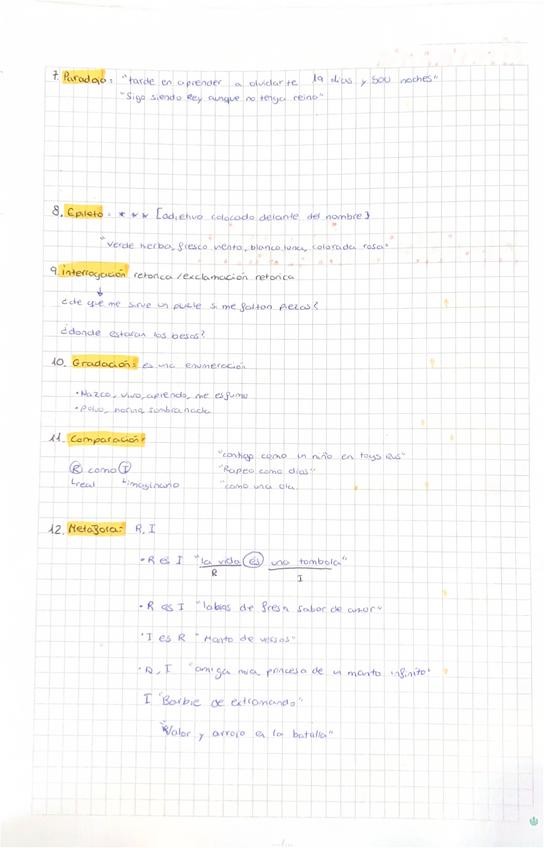 7. Paradoja: "tarde en aprender a olvidarte 19 dias y 500 noches"
"Sigo siendo Rey aunque no tenga reino"
8. Epiteto: * * * [adjetivo colocado delante del nombre]
"Verde hierba, fresco viento, blanca luna, colorada rosa"
9. interrogación retorica /exclamación retorica
¿de que me sirve un puzle si me faltan piezas?
¿donde estaran los besos?
10. Gradación: es una enumeración
• Nazco, vivo, aprendo, me esfumo
• Polvo, sombra, nada
11. Comparación:
"contigo como un niño en toys Rus"
R como I
"Rapeo como dias"
real imaginario
"como una ola
12. Metáfora: R, I
• R es I "la vida es una tombola"
R I
• R es I "labios de fresa sabor de amor"
• I es R "Manto de versos"
• R, I "amiga mia, princesa de un manto infinito"
I "Barbie de extrarradio"
"Valor y arrojo en la batalla"